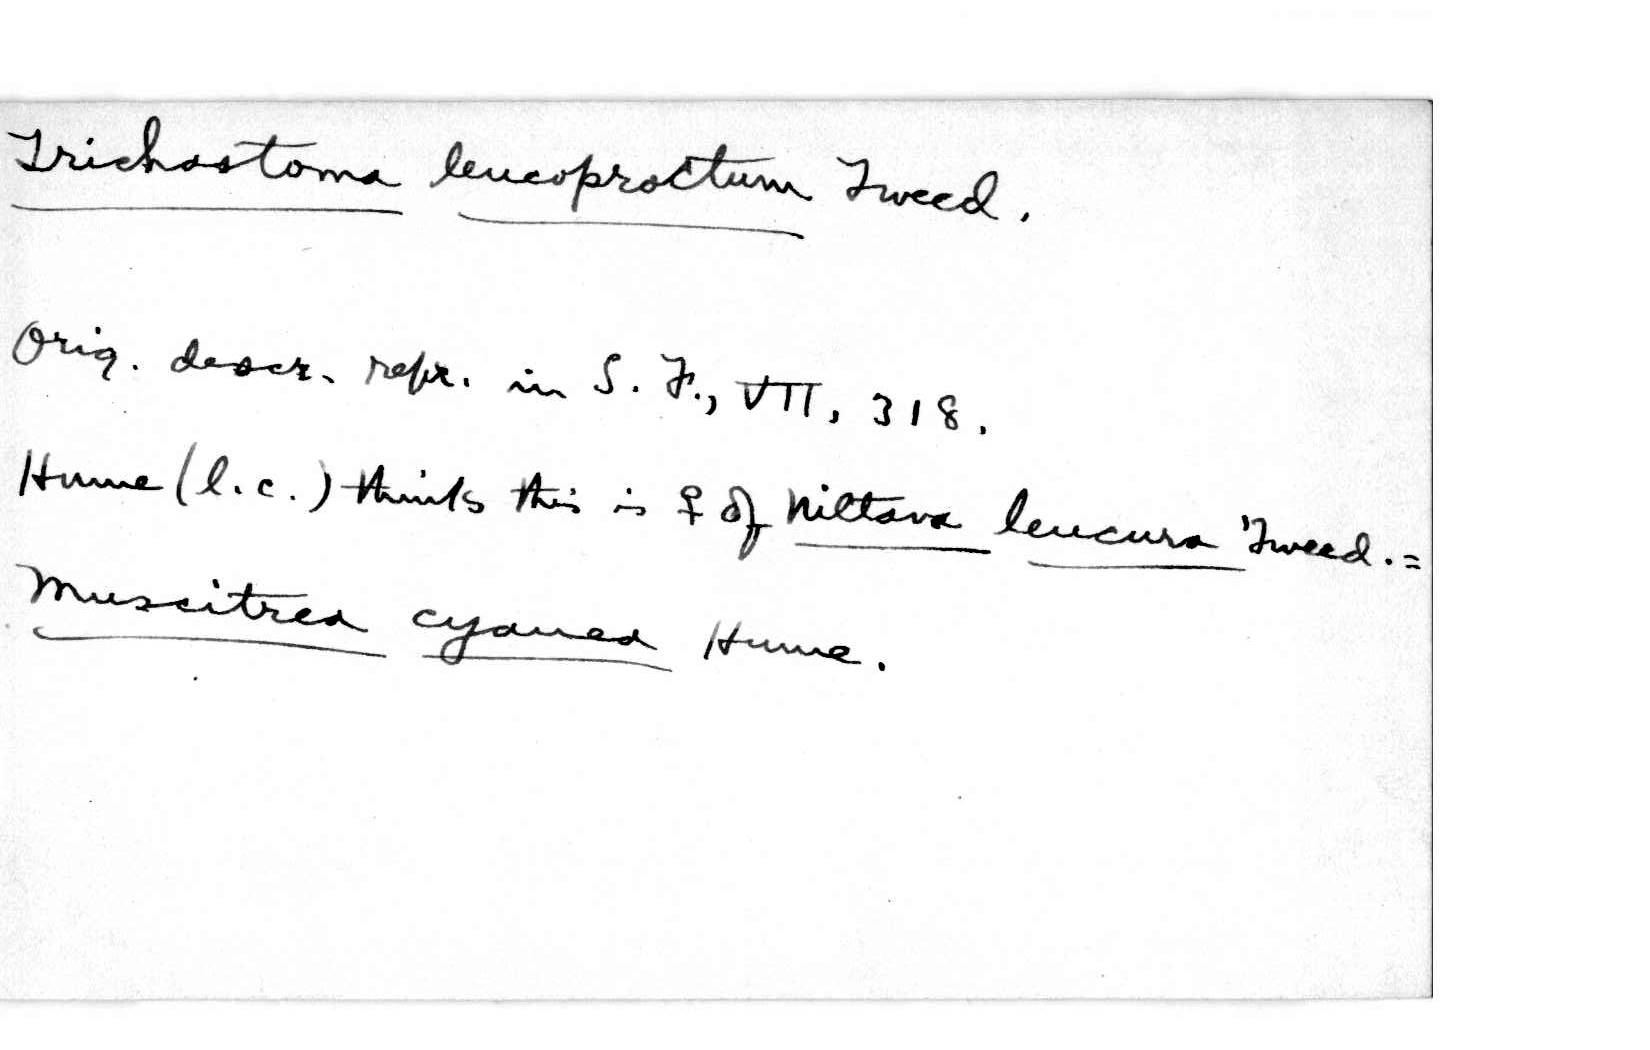 Trichostoma leucoproctum Tweed.
Orig. descr. repr. in S. F., VII, 318.
Hume (l.c.) thinks this is ♀ of Niltava leucura Tweed. =
Muscitrea cyanea Hume.